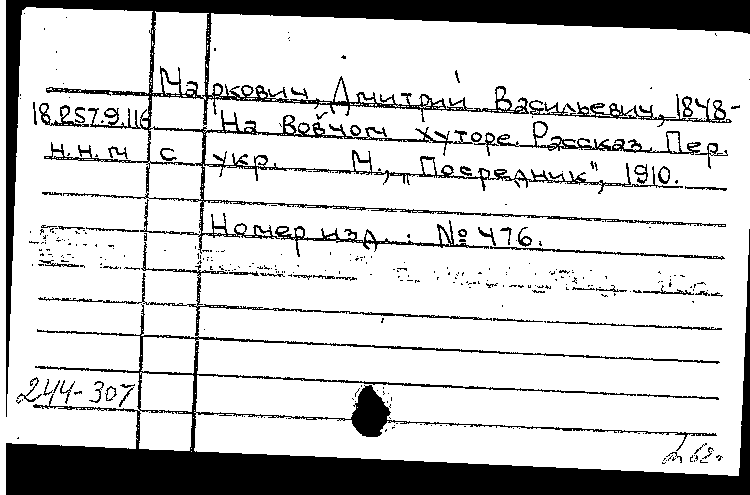 Маркович, Дмитрий Васильевич, 1848-
18.257.9.116 На Вовчом хуторе. Рассказ. Пер.
с укр. М., „Посредник", 1910.
Номер изд.: № 476.
244-307